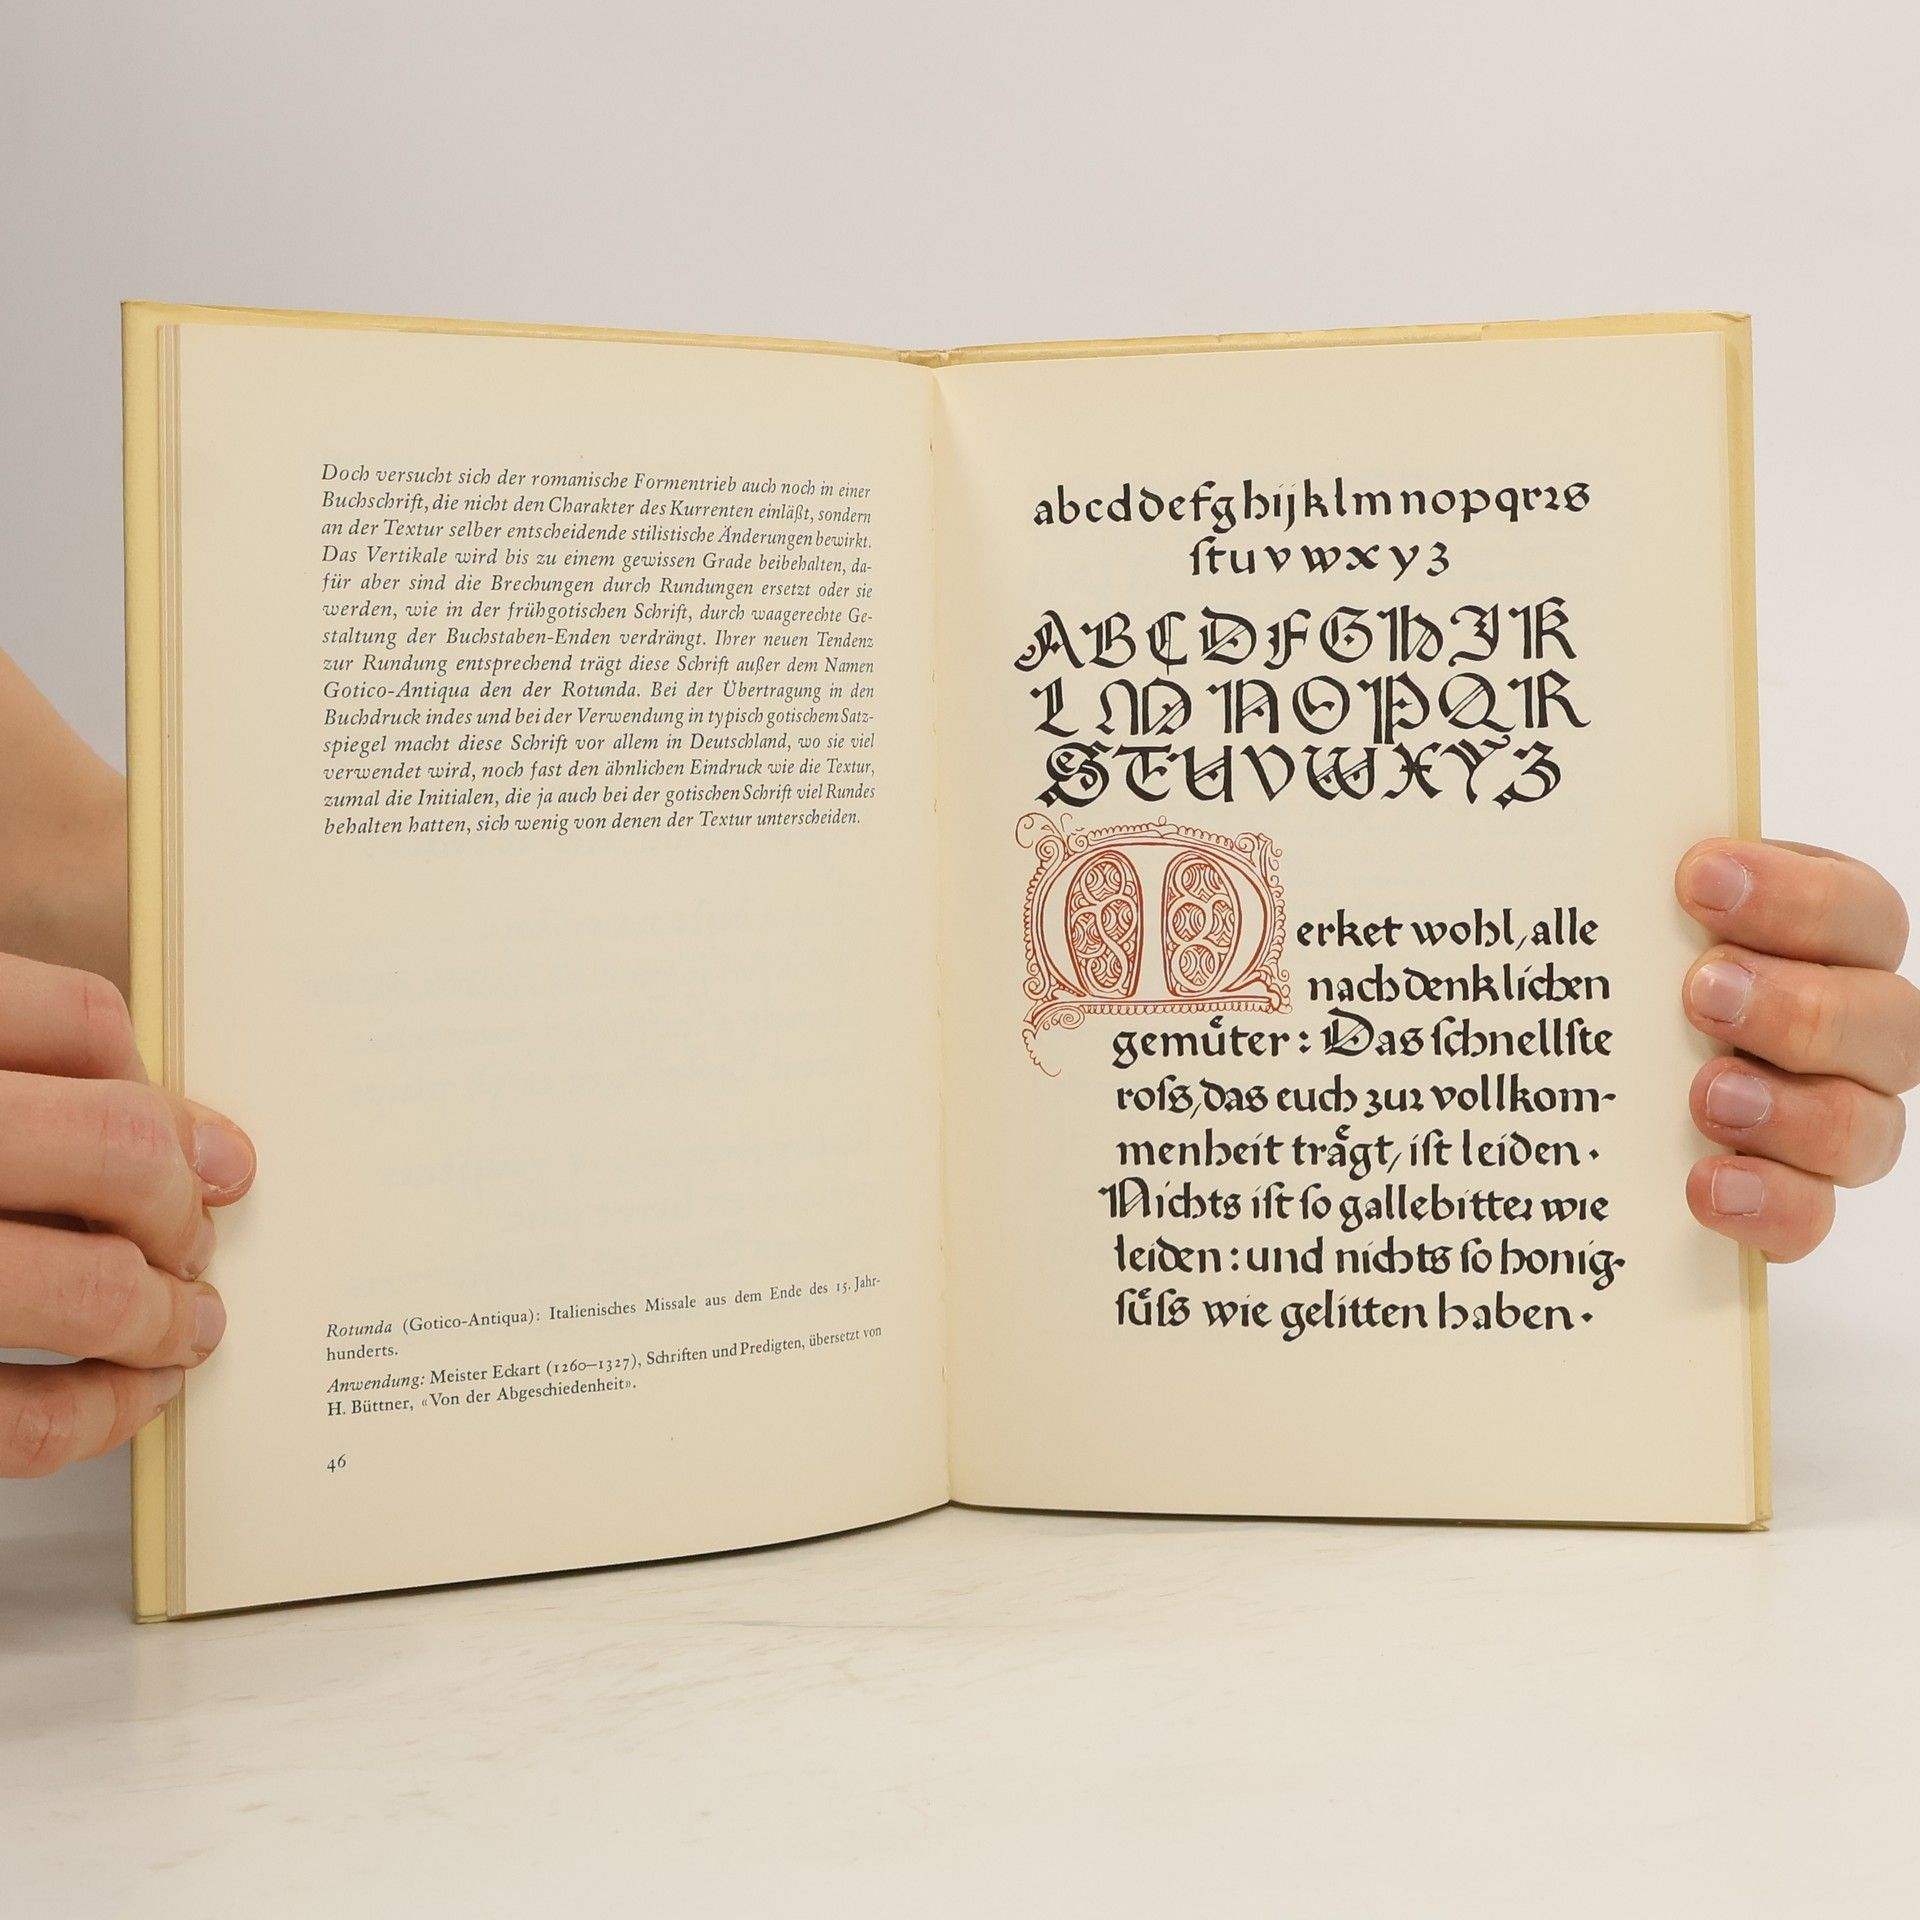 Doch versucht sich der romanische Formentrieb auch noch in einer
Buchschrift, die nicht den Charakter des Kurrenten einläßt, sondern
an der Textur selber entscheidende stilistische Änderungen bewirkt.
Das Vertikale wird bis zu einem gewissen Grade beibehalten, da-
für aber sind die Brechungen durch Rundungen ersetzt oder sie
werden, wie in der frühgotischen Schrift, durch waagerechte Ge-
staltung der Buchstaben-Enden verdrängt. Ihrer neuen Tendenz
zur Rundung entsprechend trägt diese Schrift außer dem Namen
Gotico-Antiqua den der Rotunda. Bei der Übertragung in den
Buchdruck indes und bei der Verwendung in typisch gotischem Satz-
spiegel macht diese Schrift vor allem in Deutschland, wo sie viel
verwendet wird, noch fast den ähnlichen Eindruck wie die Textur,
zumal die Initialen, die ja auch bei der gotischen Schrift viel Rundes
behalten hatten, sich wenig von denen der Textur unterscheiden.
Rotunda (Gotico-Antiqua): Italienisches Missale aus dem Ende des 15. Jahr-
hunderts.
Anwendung: Meister Eckart (1260–1327), Schriften und Predigten, übersetzt von
H. Büttner, «Von der Abgeschiedenheit».
46
abcddefghijklmnopqrꝛs
ſtuvwxyz
ABCDFGHIK
LMNOPQR
STUVWXYZ
Merket wohl, alle
nachdenklichen
gemuͤter: Das ſchnellſte
roſs, das euch zuꝛ vollkom-
menheit traͤgt, iſt leiden.
Nichts iſt ſo gallebitteꝛ wie
leiden: und nichts ſo honig-
ſuͤſs wie gelitten haben.